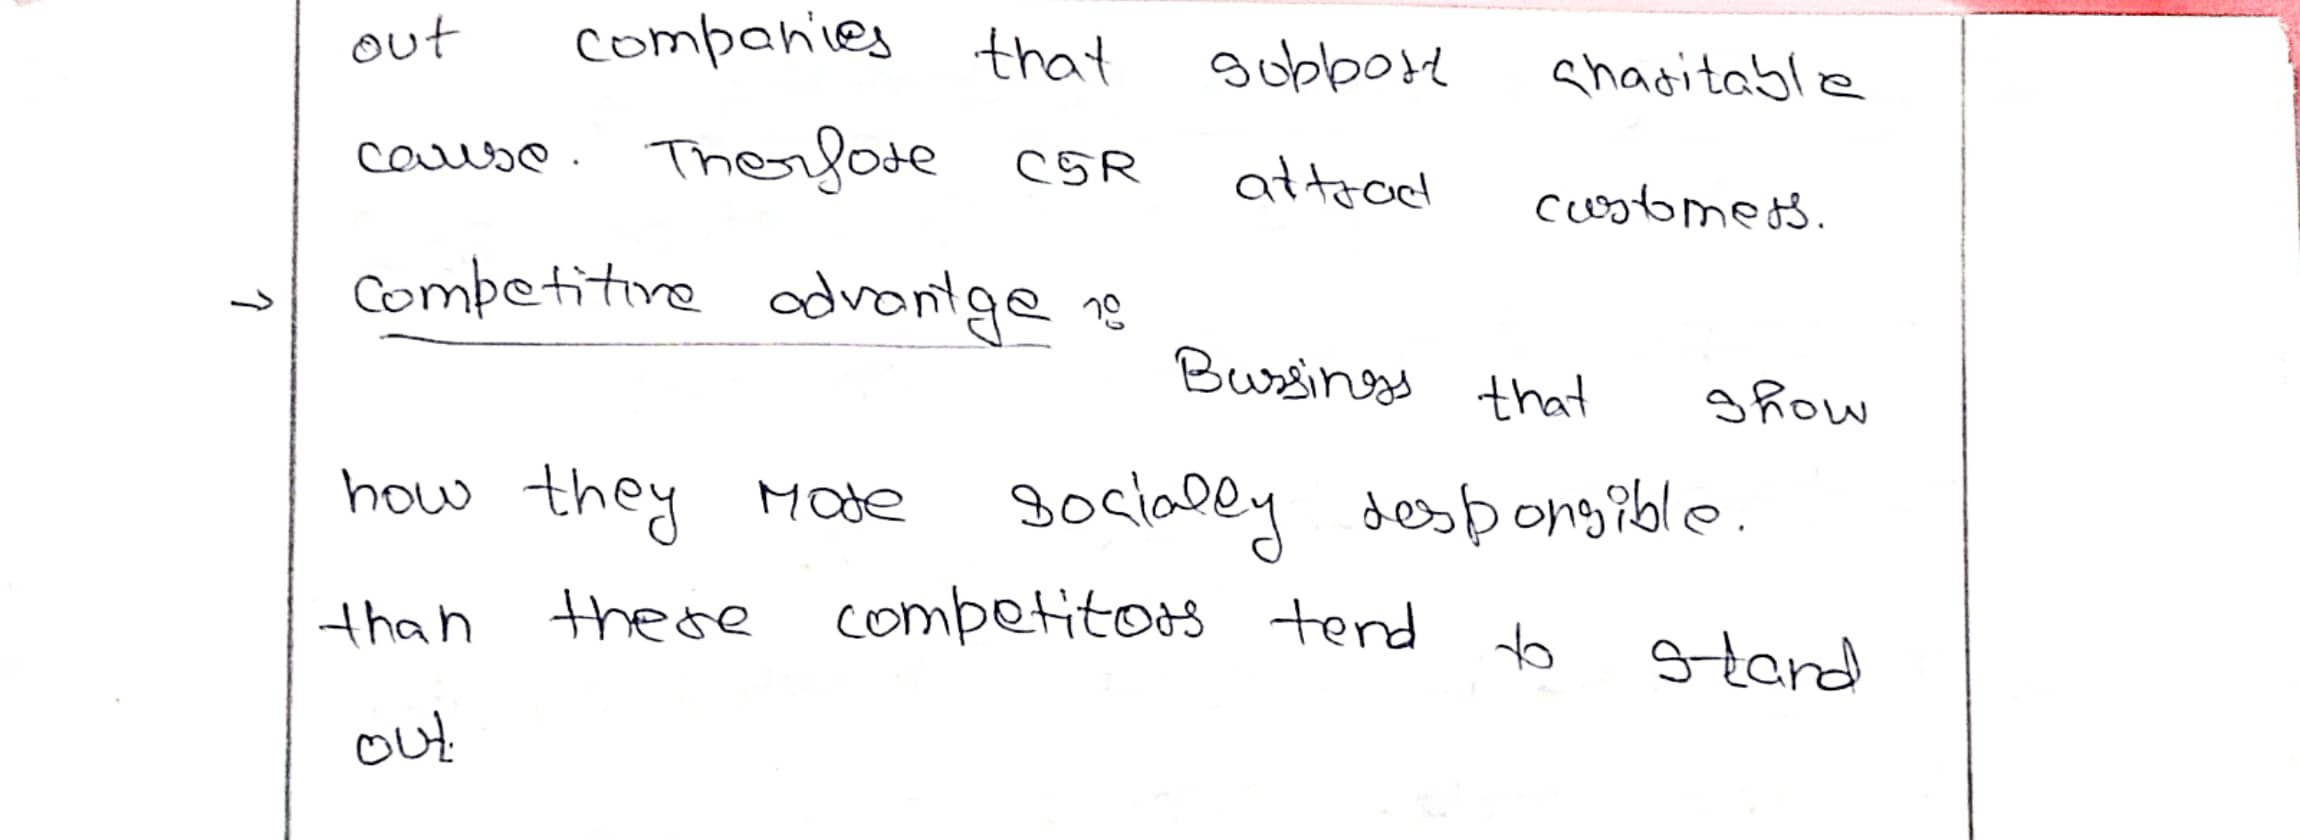 out companies that support charitable
cause. Therfore CSR attract customers.
→ Competitive advantge :-
Bussiness that show
how they more socially responsible.
than there competitors tend to stand
out.